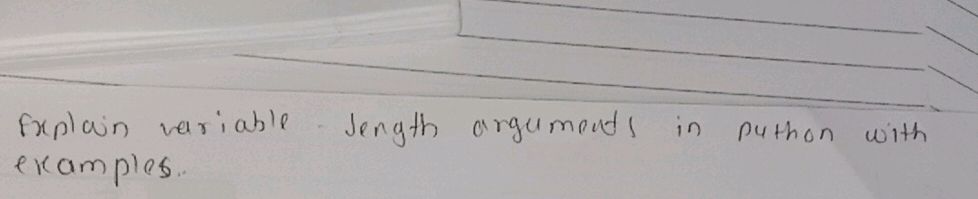 Explain variable - length arguments in python with
examples.